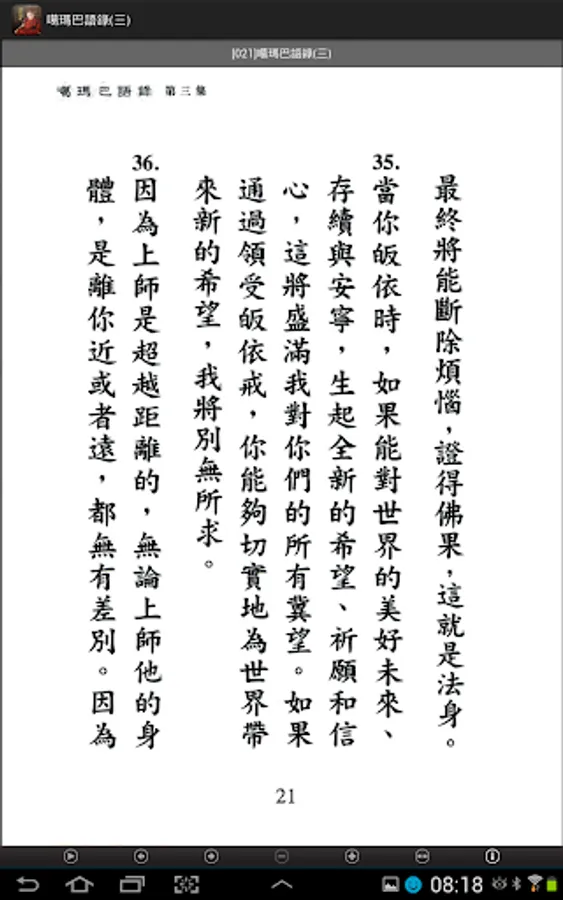 噶瑪巴語錄(三)
[021]噶瑪巴語錄(三)
噶瑪巴語錄 第三集
最終將能斷除煩惱，證得佛果，這就是法身。
35.
當你皈依時，如果能對世界的美好未來、
存續與安寧，生起全新的希望、祈願和信
心，這將盛滿我對你們的所有冀望。如果
通過領受皈依戒，你能夠切實地為世界帶
來新的希望，我將別無所求。
36.
因為上師是超越距離的，無論上師他的身
體，是離你近或者遠，都無有差別。因為
21
08:18